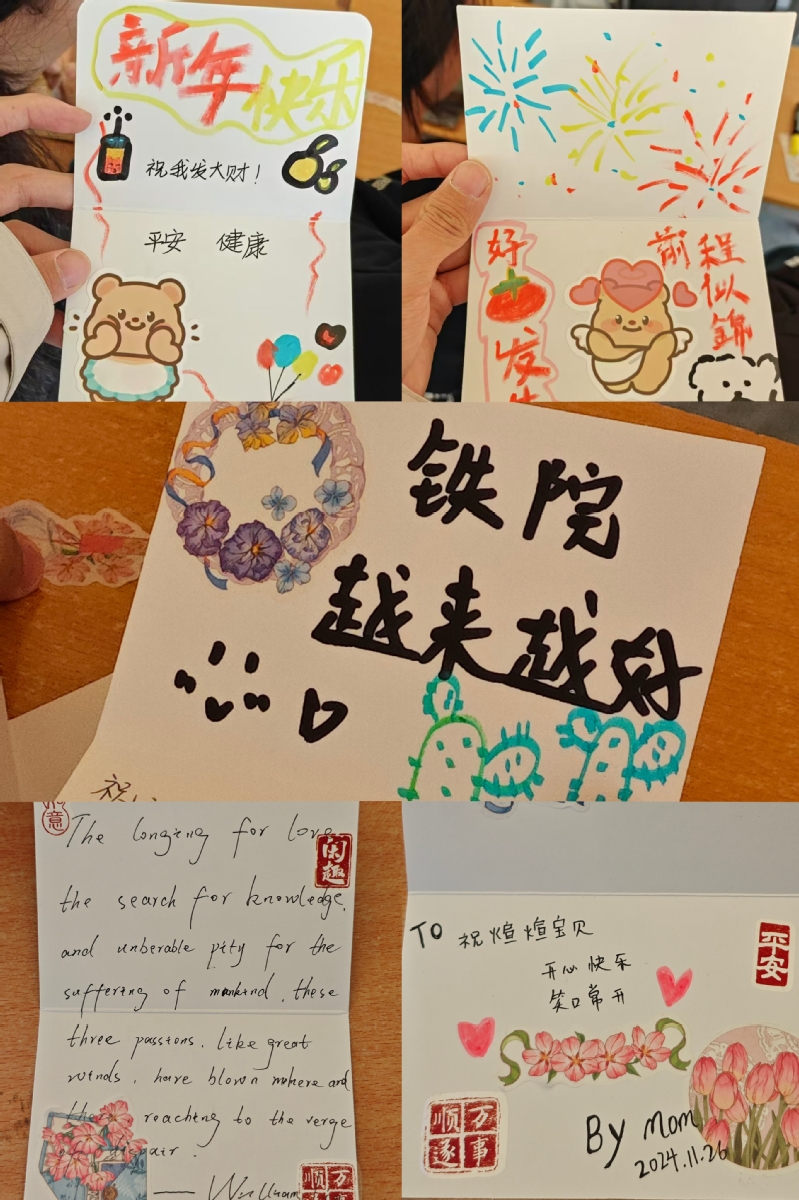 新年快乐
祝我发大财！
平安 健康
好
发生
前程
似
錦
铁院
越来越好
祝
意
The longing for love
闲趣
the search for knowledge,
and unberable pity for the
suffering of mankind, these
three passions, like great
winds, have blown
reaching to the verge
William
万事
顺遂
TO 祝煊煊宝贝
开心快乐
笑口常开
平安
万事
顺遂
By Mom
2024.11.26